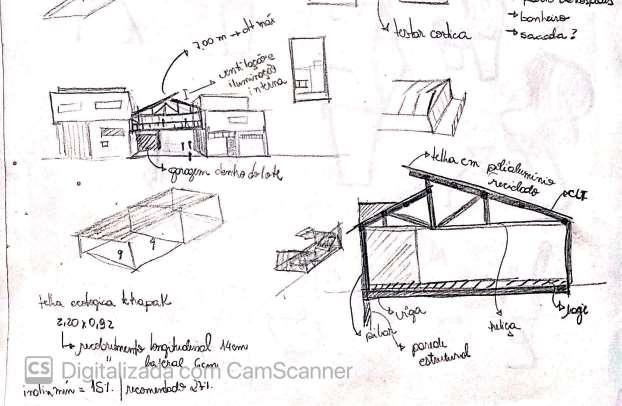 → banheiro
→ sacada?
→ testar cortiça
7.00 m → alt máx
→ ventilação e
iluminação
interna
garagem dentro do lote
→ telha em polialumínio
reciclado
CLT
9
9
telha ecológica tetrapak
2,20 x 0,92
↳ recobrimento longitudinal 14cm
" lateral 6cm
inclin mín = 18% | recomendado 27%.
viga
pilar
parede
estrutural
treliça
laje
CS Digitalizada com CamScanner